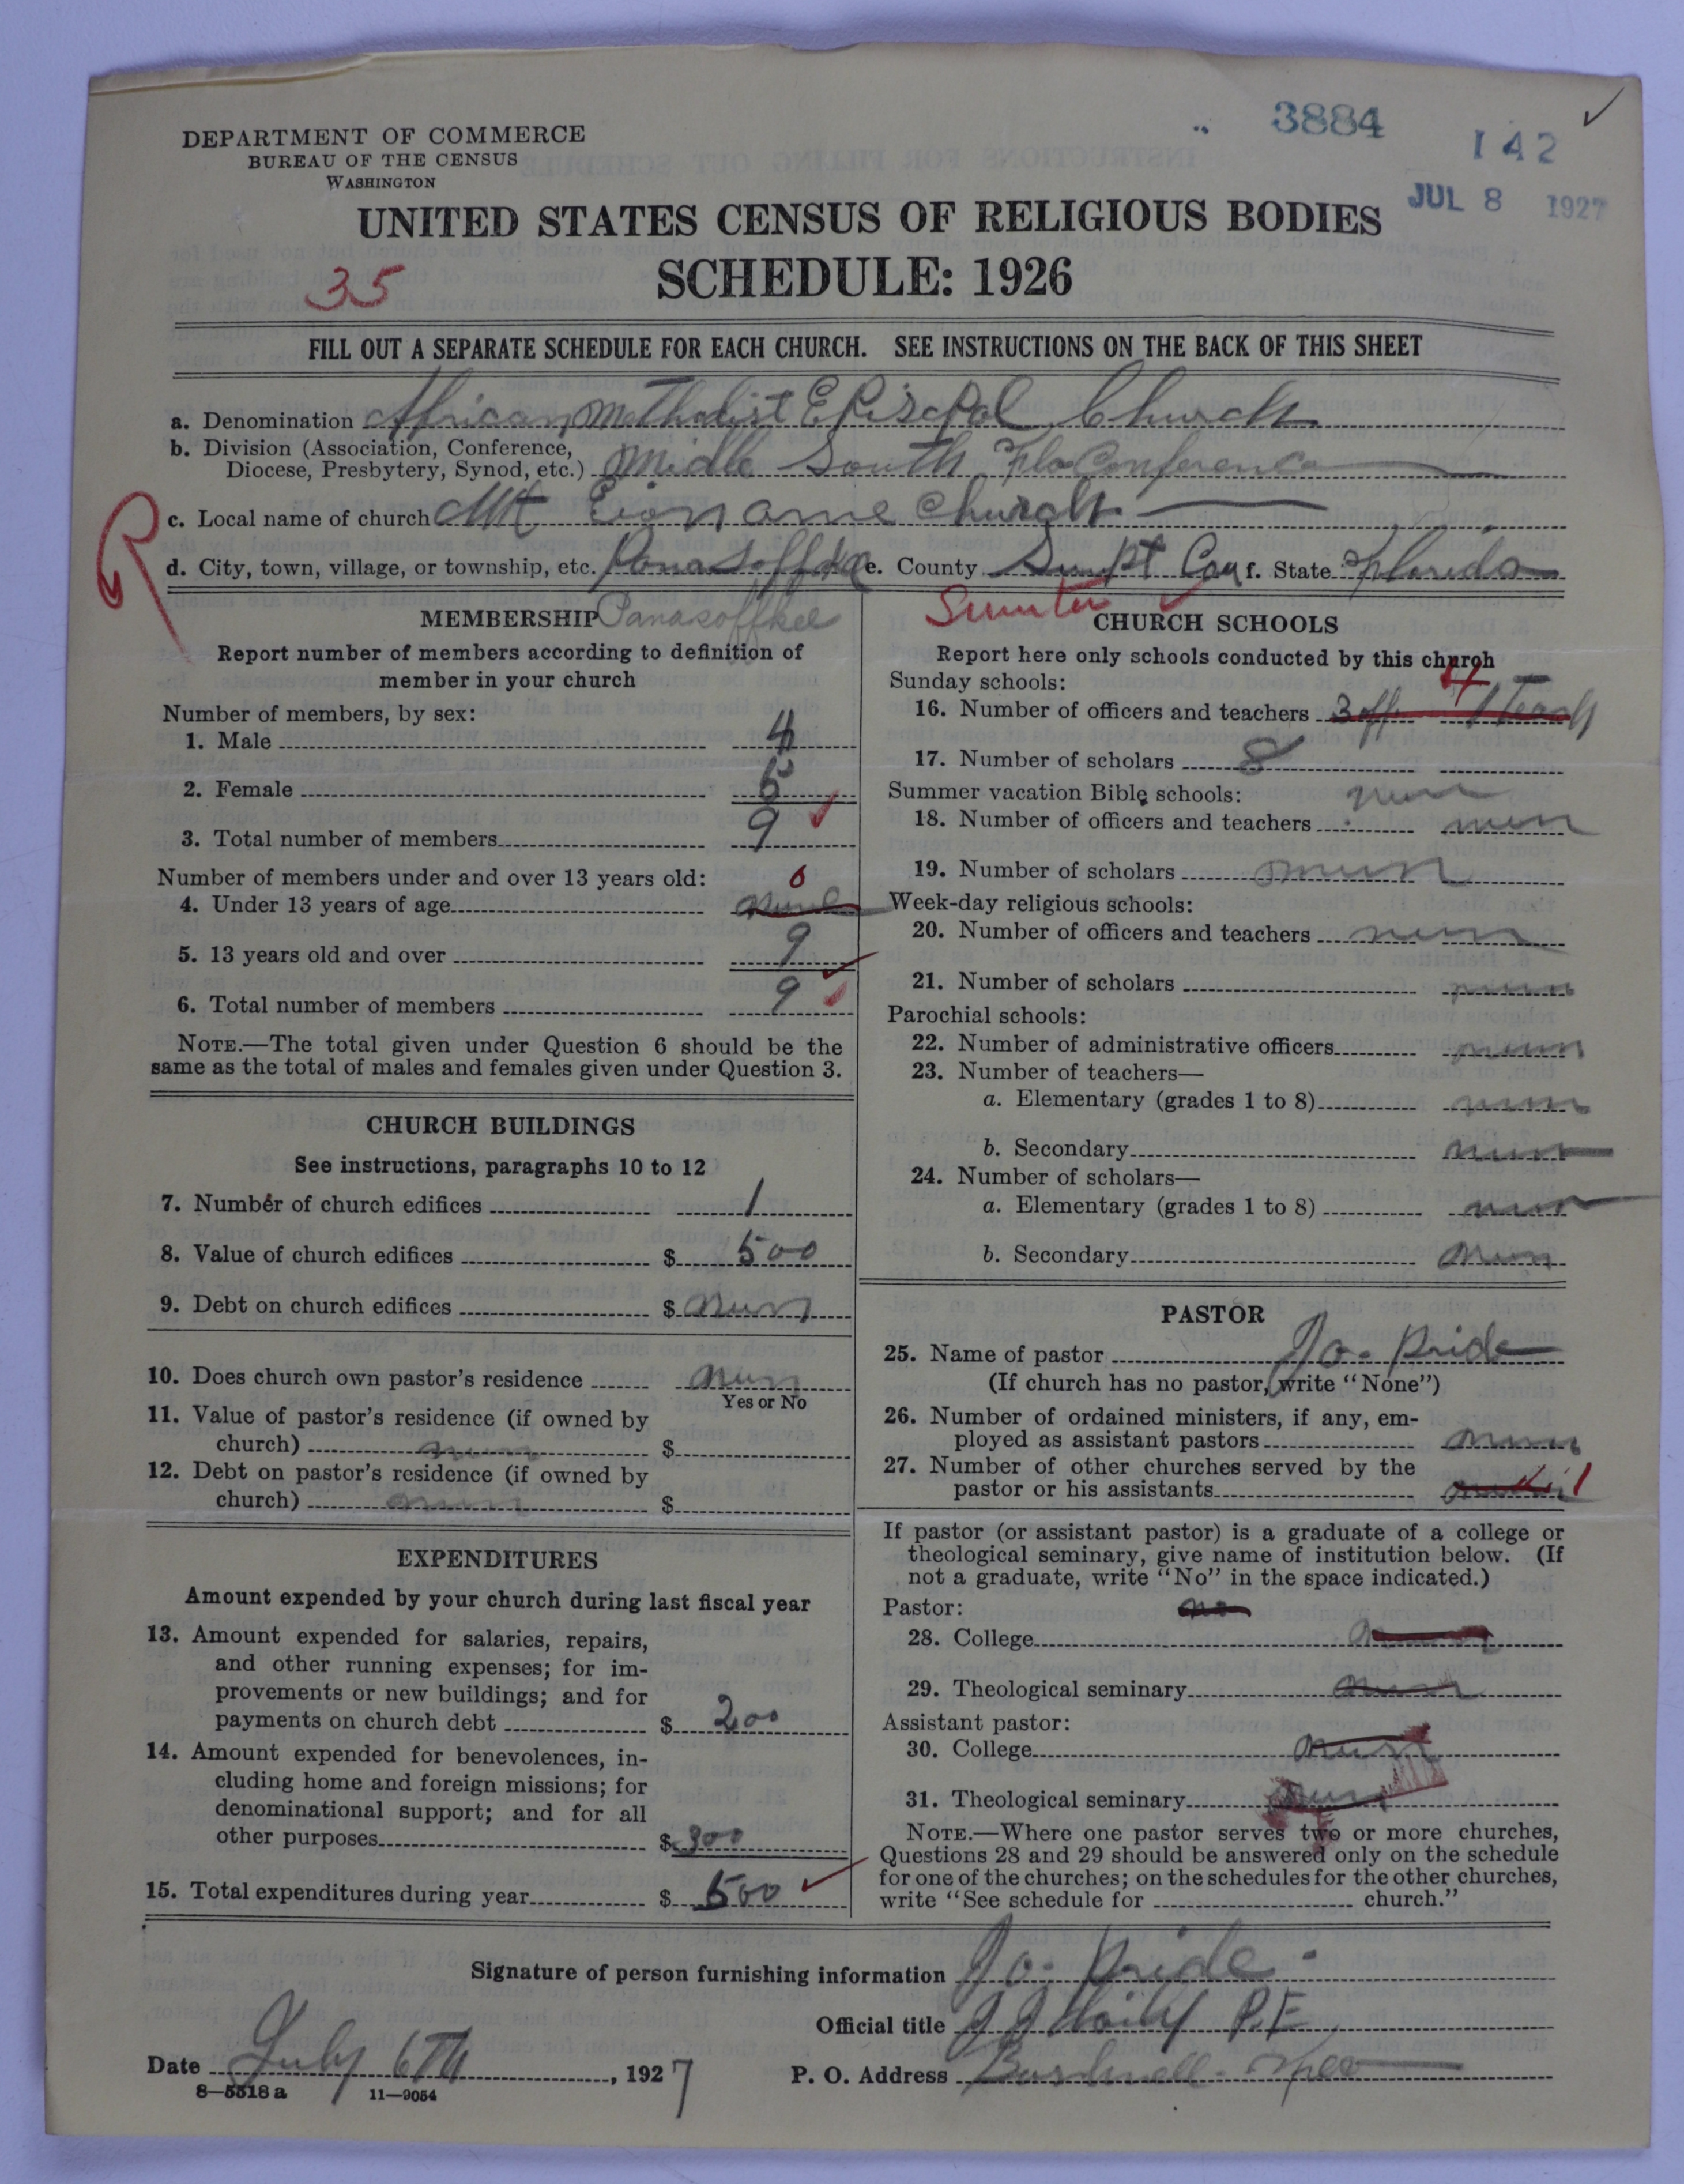 DEPARTMENT OF COMMERCE
BUREAU OF THE CENSUS
WASHINGTON
3884
142
JUL 8 1927
UNITED STATES CENSUS OF RELIGIOUS BODIES
SCHEDULE: 1926
35
FILL OUT A SEPARATE SCHEDULE FOR EACH CHURCH. SEE INSTRUCTIONS ON THE BACK OF THIS SHEET
a. Denomination African Methodist Episcpal Church
b. Division (Association, Conference,
Diocese, Presbytery, Synod, etc.) Middle South Fla Conference
c. Local name of church Mt Zion ame Church
d. City, town, village, or township, etc. Panasoffkee e. County Sumpt Cou f. State Florida
Sumter
MEMBERSHIP Panasoffkee
Report number of members according to definition of
member in your church
Number of members, by sex:
1. Male 4
2. Female 5
3. Total number of members 9
Number of members under and over 13 years old: 0
4. Under 13 years of age
5. 13 years old and over 9
6. Total number of members 9
NOTE.—The total given under Question 6 should be the
same as the total of males and females given under Question 3.
CHURCH BUILDINGS
See instructions, paragraphs 10 to 12
7. Number of church edifices 1
8. Value of church edifices $ 500
9. Debt on church edifices $ nun
10. Does church own pastor's residence nun
Yes or No
11. Value of pastor's residence (if owned by
church) nun $
12. Debt on pastor's residence (if owned by
church) nun $
EXPENDITURES
Amount expended by your church during last fiscal year
13. Amount expended for salaries, repairs,
and other running expenses; for im-
provements or new buildings; and for
payments on church debt $ 200
14. Amount expended for benevolences, in-
cluding home and foreign missions; for
denominational support; and for all
other purposes $ 300
15. Total expenditures during year $ 500
CHURCH SCHOOLS
Report here only schools conducted by this church
Sunday schools: 4
16. Number of officers and teachers 3 off 1 Teach
17. Number of scholars 8
Summer vacation Bible schools: nun
18. Number of officers and teachers nun
19. Number of scholars nun
Week-day religious schools:
20. Number of officers and teachers nun
21. Number of scholars nun
Parochial schools:
22. Number of administrative officers nun
23. Number of teachers—
a. Elementary (grades 1 to 8) nun
b. Secondary nun
24. Number of scholars—
a. Elementary (grades 1 to 8) nun
b. Secondary nun
PASTOR
25. Name of pastor Jo. Pride
(If church has no pastor, write "None")
26. Number of ordained ministers, if any, em-
ployed as assistant pastors nun
27. Number of other churches served by the
pastor or his assistants 1
If pastor (or assistant pastor) is a graduate of a college or
theological seminary, give name of institution below. (If
not a graduate, write "No" in the space indicated.)
Pastor: no
28. College
29. Theological seminary nun
Assistant pastor:
30. College nun
31. Theological seminary nun
NOTE.—Where one pastor serves two or more churches,
Questions 28 and 29 should be answered only on the schedule
for one of the churches; on the schedules for the other churches,
write "See schedule for church."
Signature of person furnishing information Jo. Pride
Official title P.E
Date July 6Th, 1927
P. O. Address Bushnell
8—5518 a 11—9054